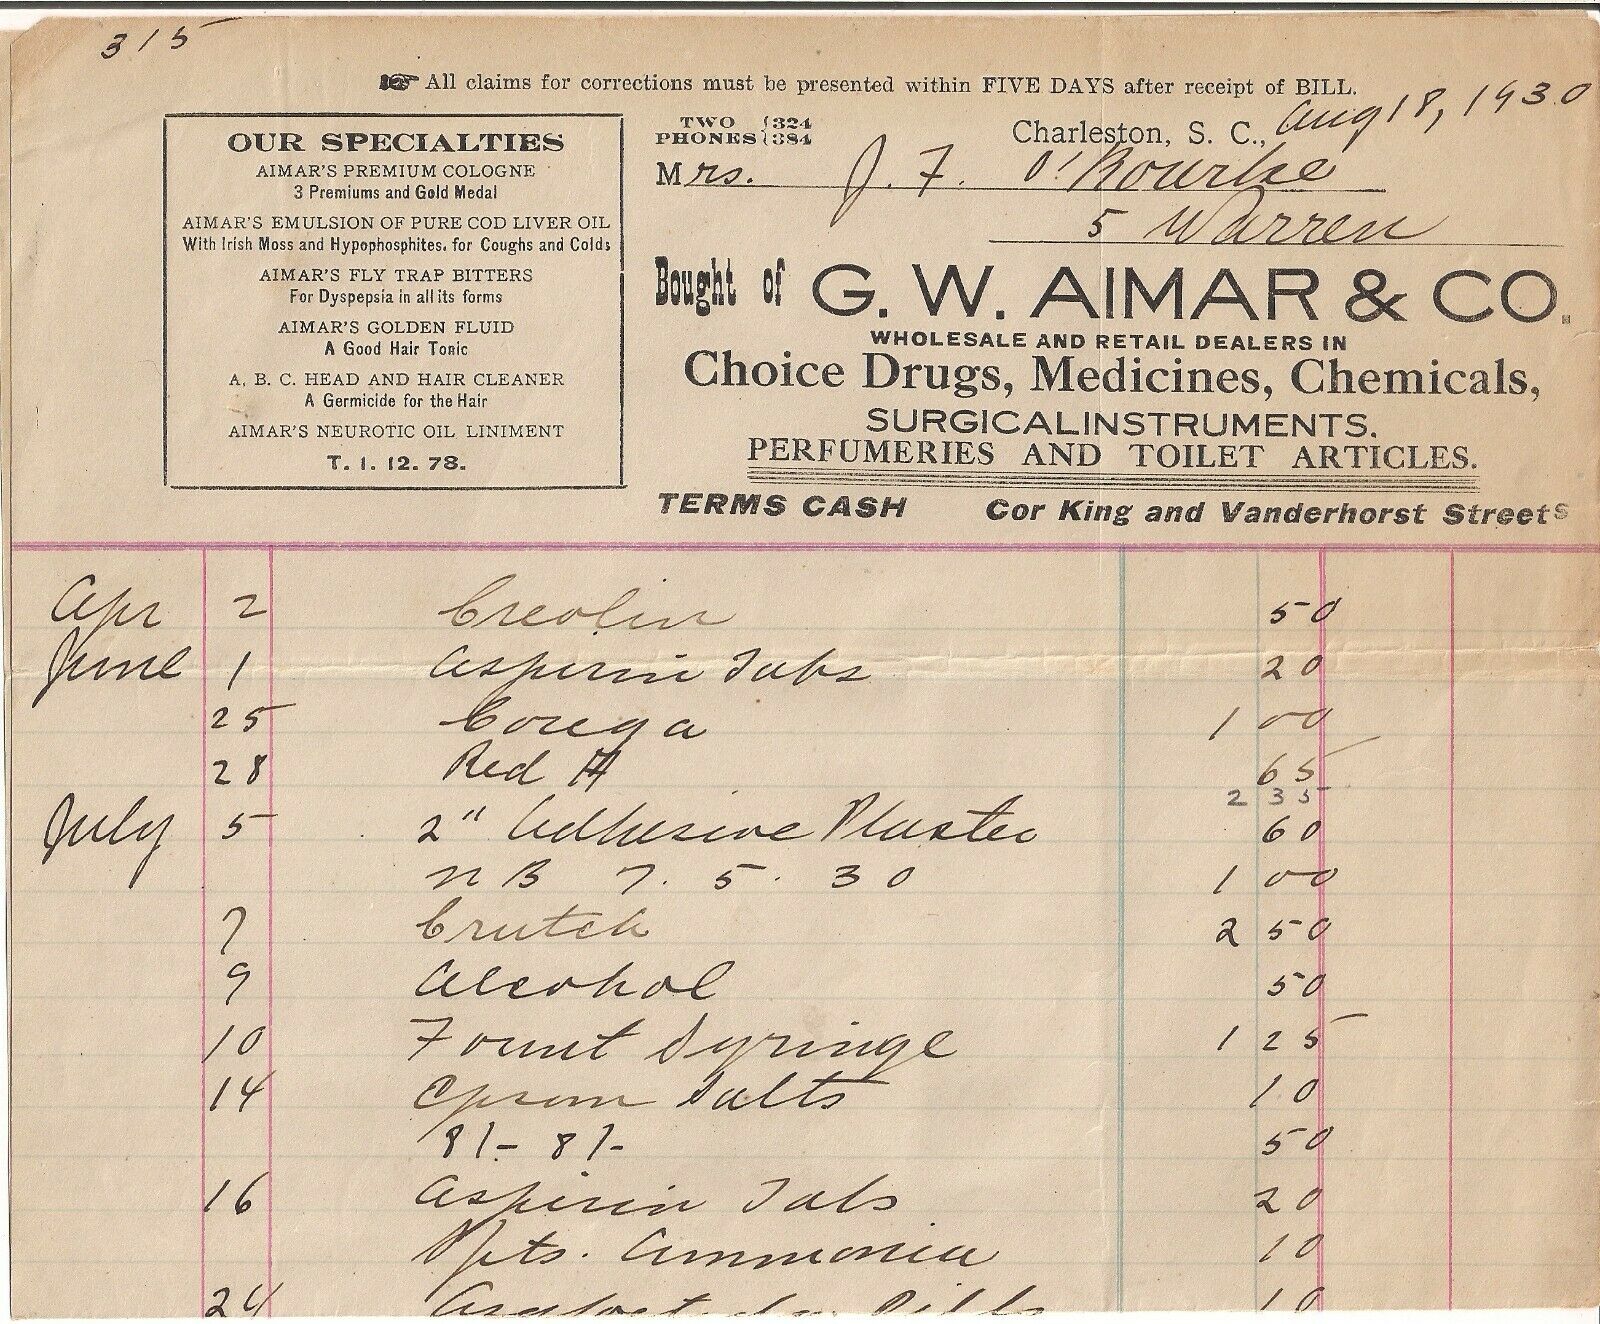 315
All claims for corrections must be presented within FIVE DAYS after receipt of BILL.
OUR SPECIALTIES
AIMAR'S PREMIUM COLOGNE
3 Premiums and Gold Medal
AIMAR'S EMULSION OF PURE COD LIVER OIL
With Irish Moss and Hypophosphites. for Coughs and Colds
AIMAR'S FLY TRAP BITTERS
For Dyspepsia in all its forms
AIMAR'S GOLDEN FLUID
A Good Hair Tonic
A. B. C. HEAD AND HAIR CLEANER
A Germicide for the Hair
AIMAR'S NEUROTIC OIL LINIMENT
T. 1. 12. 78.
TWO PHONES { 324 384
Charleston, S. C., Aug 18, 1930
Mrs. J. F. O'Rourke
5 Warren
Bought of G. W. AIMAR & CO.
WHOLESALE AND RETAIL DEALERS IN
Choice Drugs, Medicines, Chemicals,
SURGICAL INSTRUMENTS.
PERFUMERIES AND TOILET ARTICLES.
TERMS CASH Cor King and Vanderhorst Streets
Apr 2 Creolin 50
June 1 Aspirin Tabs 20
25 Corega 1 00
28 Red A 65
2 35
July 5 2" Adhesive Plaster 60
NB 7. 5. 30 1 00
7 Crutch 2 50
9 Alcohol 50
10 Fount Syringe 1 25
14 Epsom Salts 10
8/- 8/- 50
16 Aspirin Tabs 20
Pts. Ammonia 10
24 10